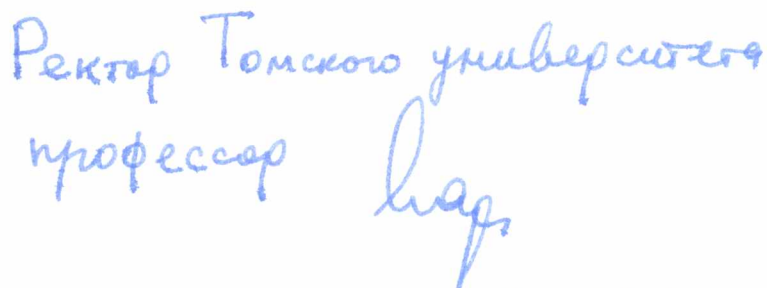 Ректор Томского университета
профессор